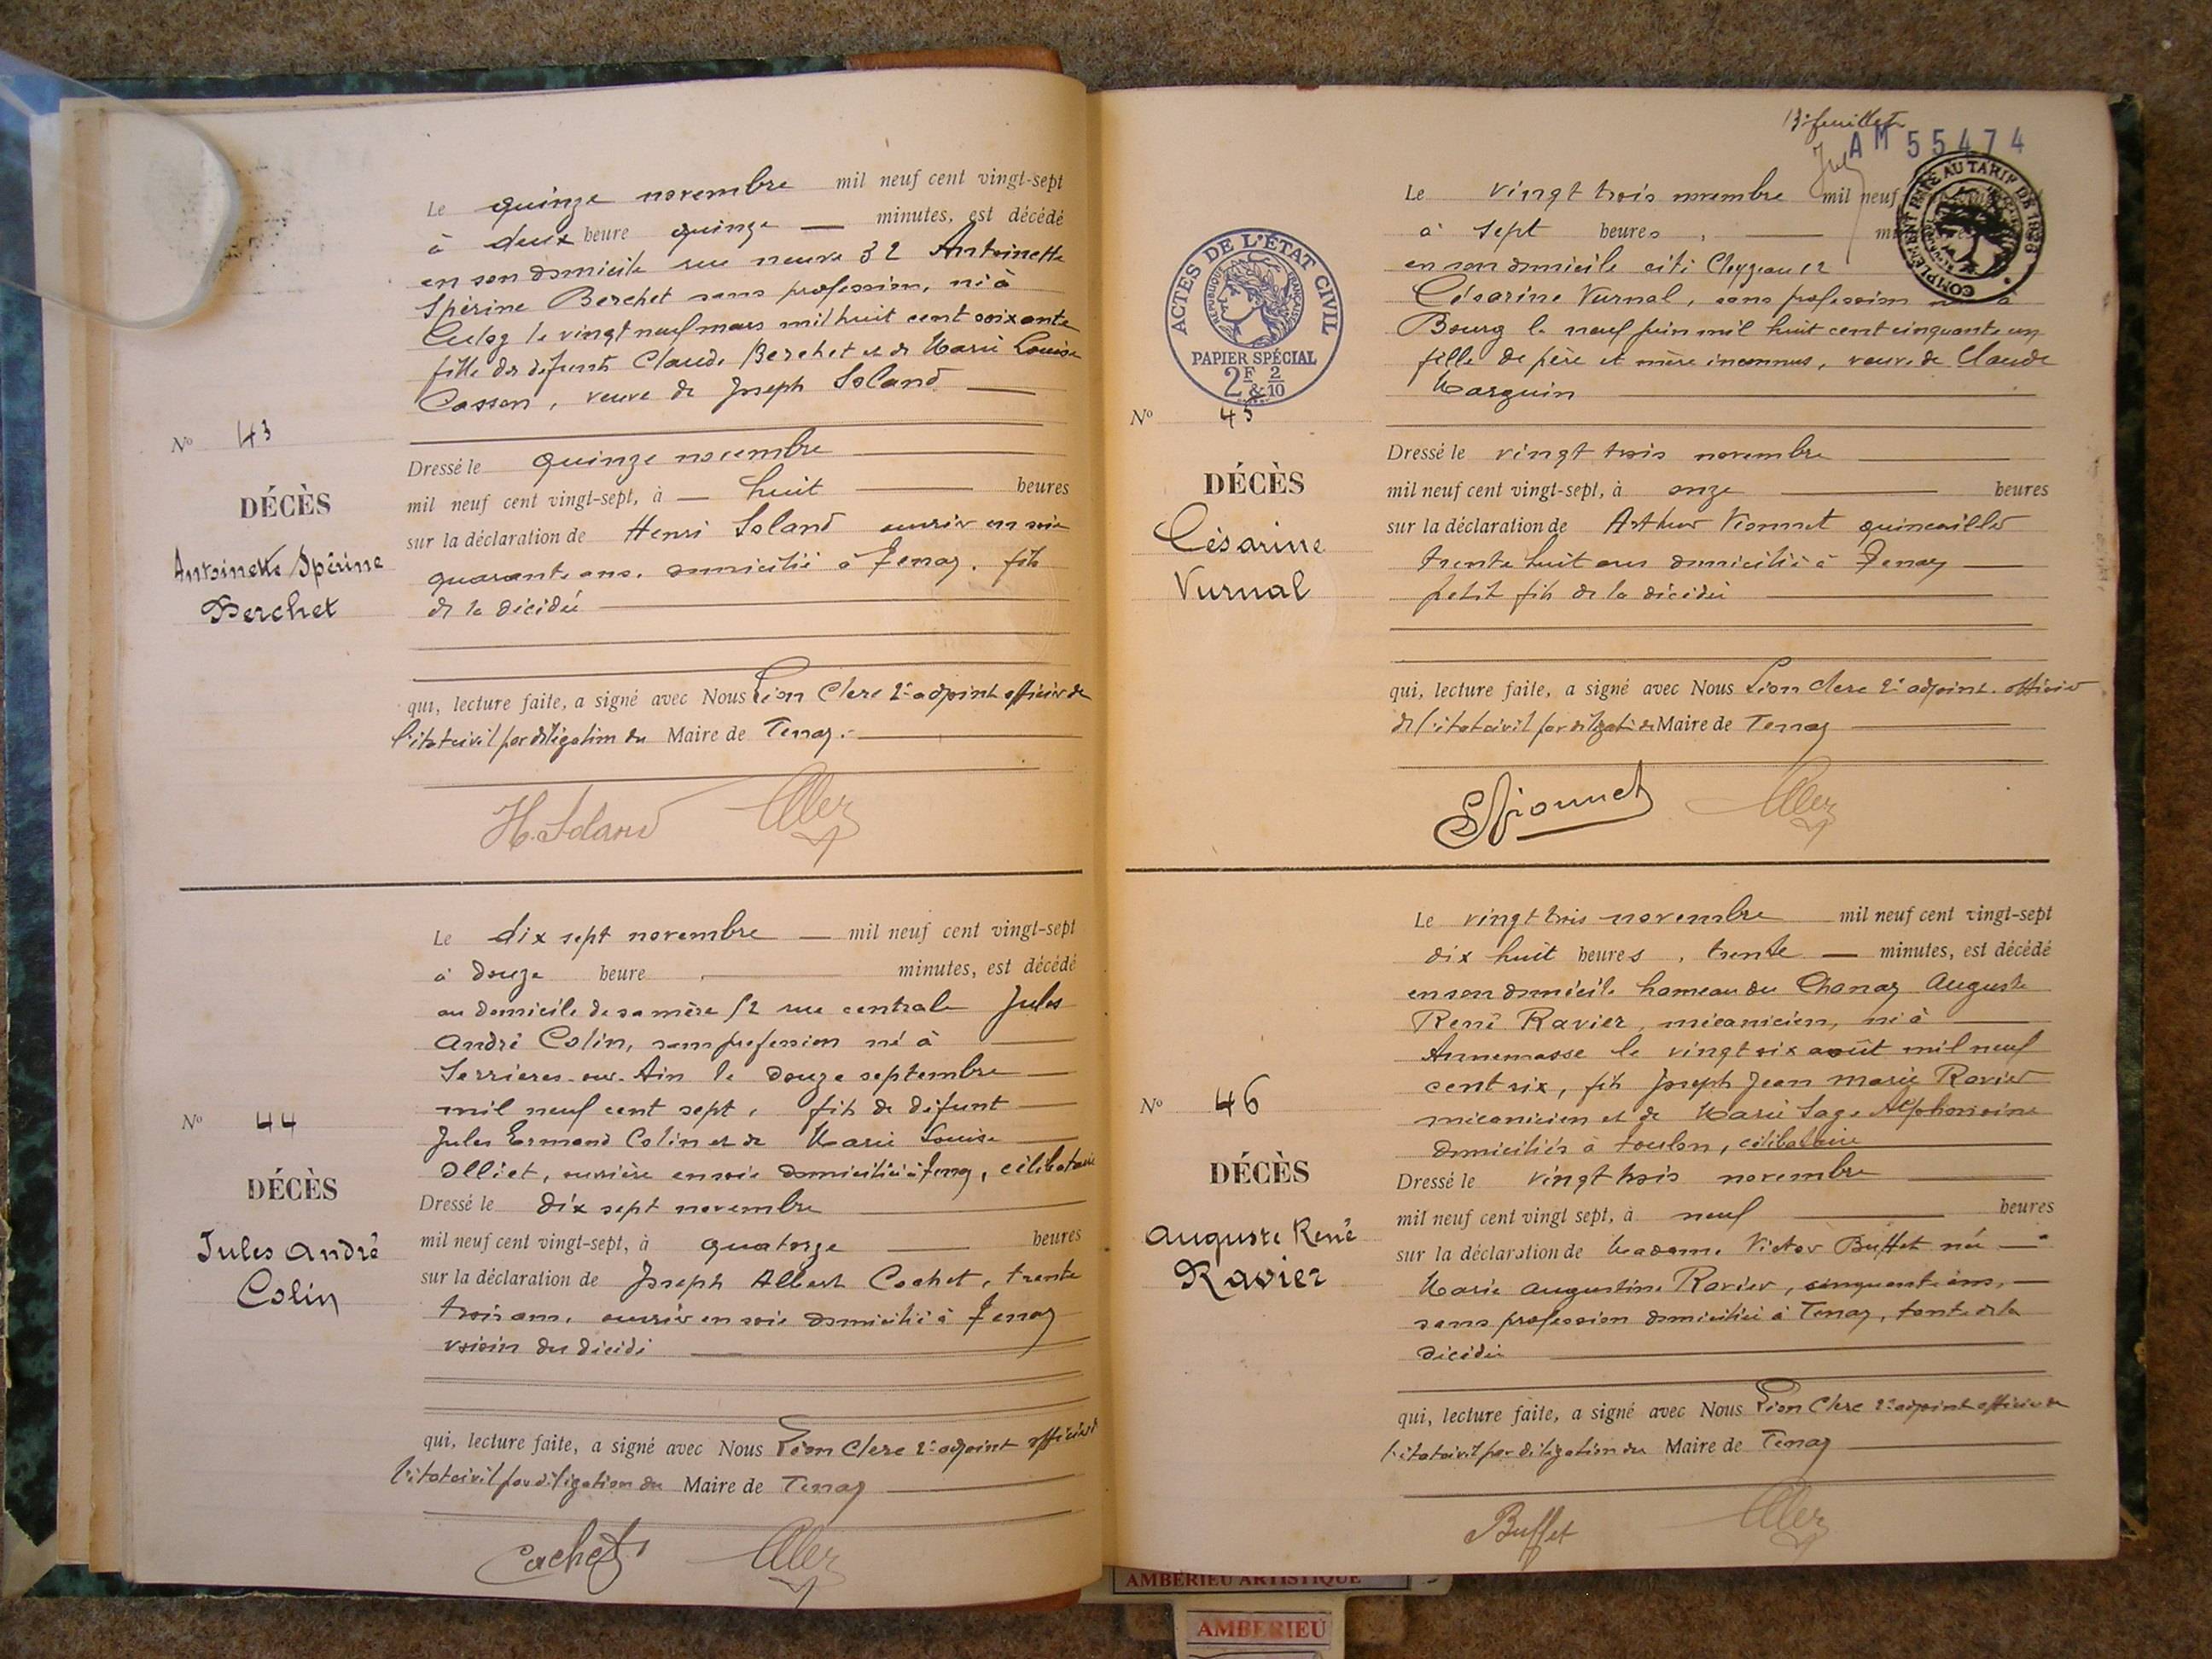 Le quinze novembre mil neuf cent vingt-sept
à deux heure quinze — minutes, est décédé
en son domicile rue neuve 32 Antoinette
Spérine Berchet sans profession, née à
Culoz le vingt neuf mars mil huit cent soixante
fille de défunts Claude Berchet et de Marie Louise
Casson, veuve de Joseph Soland
No 43
DÉCÈS
Antoinette Spérine
Berchet
Dressé le quinze novembre
mil neuf cent vingt-sept, à — huit — heures
sur la déclaration de Henri Soland ouvrier en soie
quarante ans, domicilié à Tenay, fils
de la décédée
qui, lecture faite, a signé avec Nous Léon Clerc 2e adjoint officier de
l'état civil par délégation du Maire de Tenay.
H. Soland
Le dix sept novembre — mil neuf cent vingt-sept
à douze heure minutes, est décédé
au domicile de sa mère 52 rue centrale Jules
André Colin, sans profession né à
Serrières-sur-Ain le douze septembre
mil neuf cent sept, fils de défunt
Jules Ermand Colin et de Marie Louise
Olliet, ouvrière en soie domiciliée à Tenay, célibataire
No 44
DÉCÈS
Jules André
Colin
Dressé le dix sept novembre
mil neuf cent vingt-sept, à quatorze heures
sur la déclaration de Joseph Albert Cochet, trente
trois ans, ouvrier en soie domicilié à Tenay
voisin du décédé
qui, lecture faite, a signé avec Nous Léon Clerc 2e adjoint officier d
l'état civil par délégation du Maire de Tenay
Cachet
13e feuillet
AM 55474
COMPLÉMENT PAYÉ AU TARIF DE 1926
Le vingt trois novembre mil neuf
à sept heures, —
en son domicile cité Cleyzeau 12
Césarine Vurnal, sans profession née à
Bourg le neuf juin mil huit cent cinquante un
fille de père et mère inconnus, veuve de Claude
Marquin
ACTES DE L'ÉTAT CIVIL
RÉPUBLIQUE FRANÇAISE
PAPIER SPÉCIAL
2F & 2/10
No 45
DÉCÈS
Césarine
Vurnal
Dressé le vingt trois novembre
mil neuf cent vingt-sept, à onze heures
sur la déclaration de Arthur Vionnet quincailler
trente huit ans domicilié à Tenay
petit fils de la décédée
qui, lecture faite, a signé avec Nous Léon Clerc 2e adjoint officier
de l'état civil par délégation du Maire de Tenay
Vionnet
Le vingt trois novembre mil neuf cent vingt-sept
dix huit heures, trente — minutes, est décédé
en son domicile hameau du Chanay Auguste
René Ravier, mécanicien, né à
Annemasse le vingt six août mil neuf
cent six, fils Joseph Jean Marie Ravier
mécanicien et de Marie Sage Alphonsine
domiciliés à Toulon, célibataire
No 46
DÉCÈS
Auguste René
Ravier
Dressé le vingt trois novembre
mil neuf cent vingt sept, à neuf heures
sur la déclaration de Madame Victor Buffet née —
Marie Augustine Ravier, cinquante ans, —
sans profession domiciliée à Tenay, tante de la
décédée
qui, lecture faite, a signé avec Nous Léon Clerc 2e adjoint officier de
l'état civil par délégation du Maire de Tenay
Buffet
AMBÉRIEU ARTISTIQUE
AMBERIEU